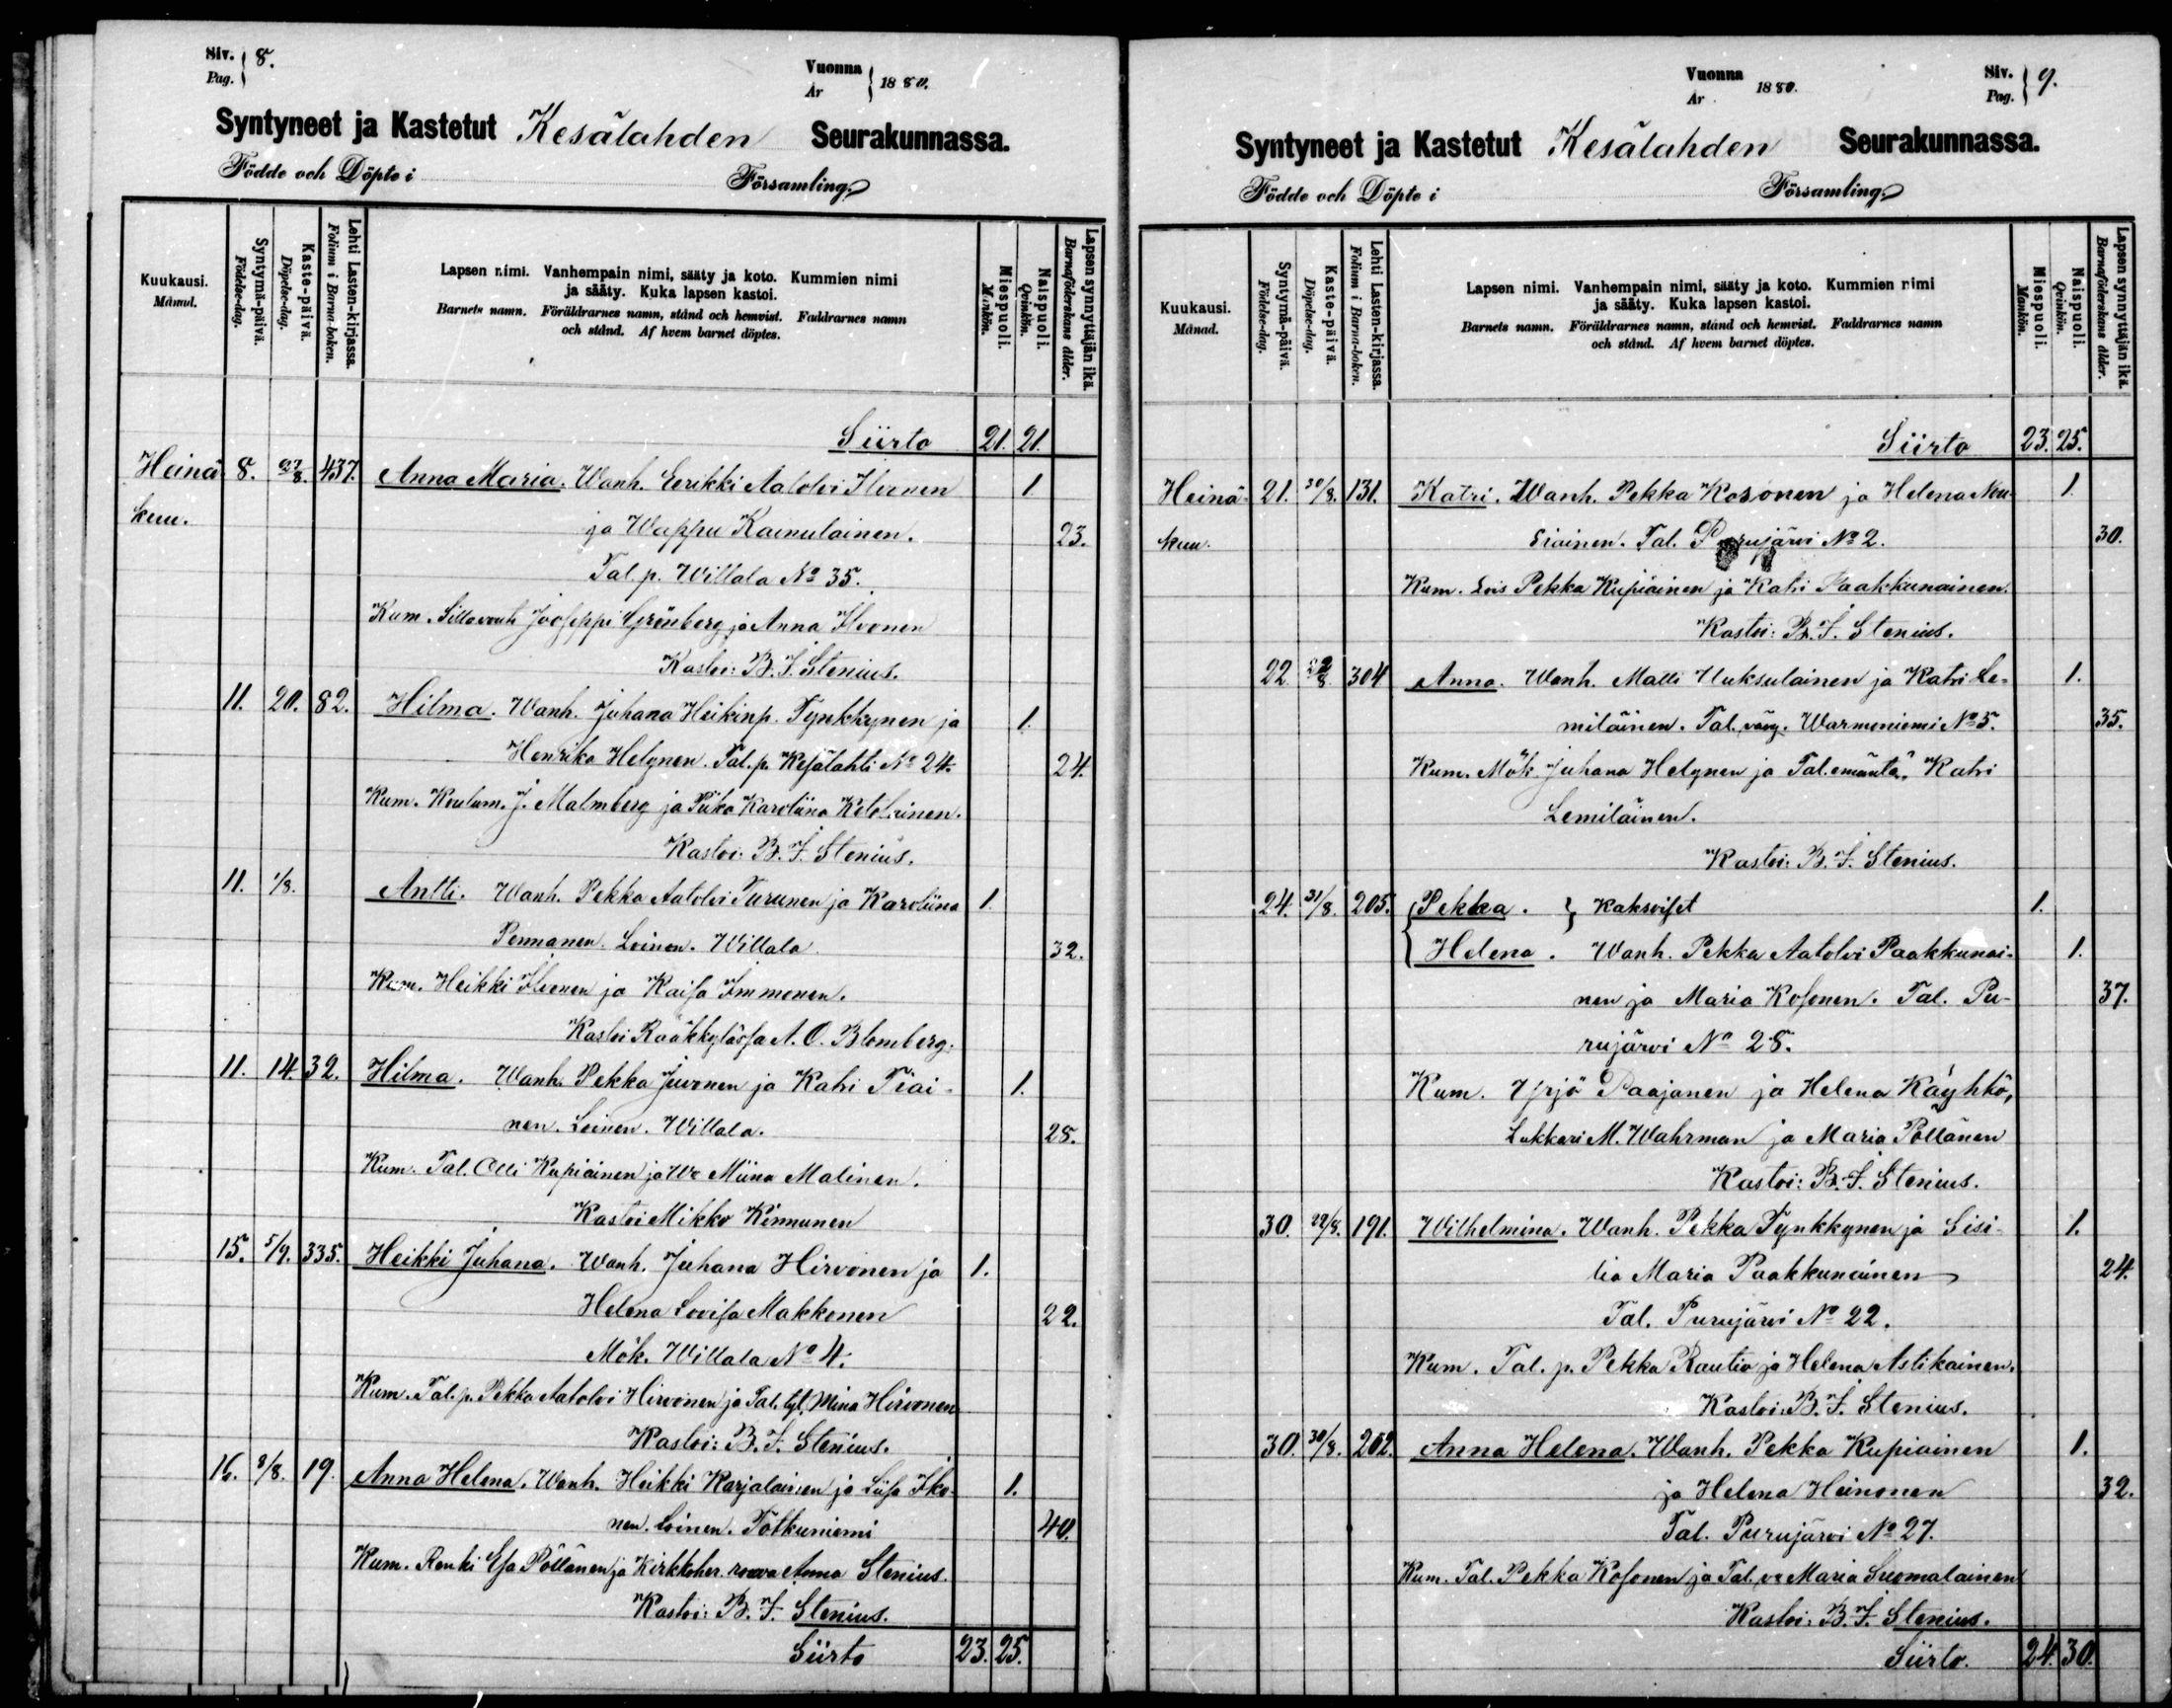 Siv. 8.
Pag.
Vuonna 1880.
År
Syntyneet ja Kastetut Kesälahden Seurakunnassa.
Födde och Döpte i Församling.
Kuukausi. Månad.
Syntymä-päivä. Födelse-dag.
Kaste-päivä. Döpelse-dag.
Lehti Lasten-kirjassa. Folium i Barna-boken.
Lapsen nimi. Vanhempain nimi, sääty ja koto. Kummien nimi
ja sääty. Kuka lapsen kastoi.
Barnets namn. Föräldrarnes namn, stånd och hemvist. Faddrarnes namn
och stånd. Af hvem barnet döptes.
Miespuoli. Mankön.
Naispuoli. Qvinkön.
Lapsen synnyttäjän ikä. Barnaföderskans ålder.
Siirto 21. 21.
Heinä 8. 22/8. 437. Anna Maria. Wanh. Eerikki Aatolvi Ilvonen 1.
kuu. ja Wappu Kainulainen. 23.
Tal. p. Willala No 35.
Kum. Siltavouti Jooseppi Grönberg ja Anna Ilvonen
Kastoi: B. J. Stenius.
11. 20. 82. Hilma. Wanh. Juhana Heikinp. Tynkkynen ja 1.
Henrika Helynen. Tal. p. Kesälahti No 24. 24.
Kum. Koulum. J. Malmberg ja Piika Karoliina Ketolainen.
Kastoi: B. J. Stenius.
11. 1/8. Antti. Wanh. Pekka Aatolvi Turunen ja Karoliina 1.
Pennanen. Loinen. Willala. 32.
Kum. Heikki Ilvonen ja Kaisa Immonen.
Kastoi Rääkkylässä A. O. Blomberg.
11. 14. 32. Hilma. Wanh. Pekka Juvonen ja Katri Tiai- 1.
nen. Loinen. Willala. 28.
Kum. Tal. Olli Kupiainen ja Wo Miina Malinen.
Kastoi Mikko Kinnunen
15. 5/9. 335. Heikki Juhana. Wanh. Juhana Hirvonen ja 1.
Helena Lovisa Makkonen 22.
Mök. Willala No 4.
Kum. Tal. p. Pekka Aatolvi Hirvonen ja Tal. tyt. Mina Hirvonen
Kastoi: B. J. Stenius.
16. 8/8. 19. Anna Helena. Wanh. Heikki Karjalainen ja Liisa Iko- 1.
nen. Loinen. Totkuniemi 40.
Kum. Renki Esa Pöllänen ja Kirkkoher. rouva Anna Stenius.
Kastoi: B. J. Stenius.
Siirto 23. 25.
Vuonna 1880.
År
Siv. 9.
Pag.
Syntyneet ja Kastetut Kesälahden Seurakunnassa.
Födde och Döpte i Församling.
Kuukausi. Månad.
Syntymä-päivä. Födelse-dag.
Kaste-päivä. Döpelse-dag.
Lehti Lasten-kirjassa. Folium i Barna-boken.
Lapsen nimi. Vanhempain nimi, sääty ja koto. Kummien nimi
ja sääty. Kuka lapsen kastoi.
Barnets namn. Föräldrarnes namn, stånd och hemvist. Faddrarnes namn
och stånd. Af hvem barnet döptes.
Miespuoli. Mankön.
Naispuoli. Qvinkön.
Lapsen synnyttäjän ikä. Barnaföderskans ålder.
Siirto 23. 25.
Heinä- 21. 30/8. 131. Katri. Wanh. Pekka Kosonen ja Helena Nou- 1.
kuu. siainen. Tal. Purujärvi No 2. 30.
Kum. Lois Pekka Kupiainen ja Katri Paakkunainen.
Kastoi: B. J. Stenius.
22. 22/8 304 Anna. Wanh. Matti Uuksulainen ja Katri Le- 1.
miläinen. Tal. vävy. Warmoniemi No 5. 35.
Kum. Mök. Juhana Helynen ja Tal. emäntä Katri
Lemiläinen.
Kastoi: B. J. Stenius.
24. 31/8. 205. Pekka. } Kaksoiset 1.
Helena. Wanh. Pekka Aatolvi Paakkunai- 1.
nen ja Maria Kosonen. Tal. Pu- 37.
rujärvi No 28.
Kum. Yrjö Paajanen ja Helena Käyhkö,
Lukkari M. Wahrman ja Maria Pöllänen
Kastoi: B. J. Stenius.
30. 22/8. 191. Wilhelmina. Wanh. Pekka Tynkkynen ja Sisi- 1.
lia Maria Paakkunainen 24.
Tal. Purujärvi No 22.
Kum. Tal. p. Pekka Rautio ja Helena Astikainen.
Kastoi: B. J. Stenius.
30. 30/8. 202. Anna Helena. Wanh. Pekka Kupiainen 1.
ja Helena Heinonen 32.
Tal. Purujärvi No 27.
Kum. Tal. Pekka Kosonen ja Tal. vo Maria Suomalainen
Kastoi: B. J. Stenius.
Siirto. 24. 30.